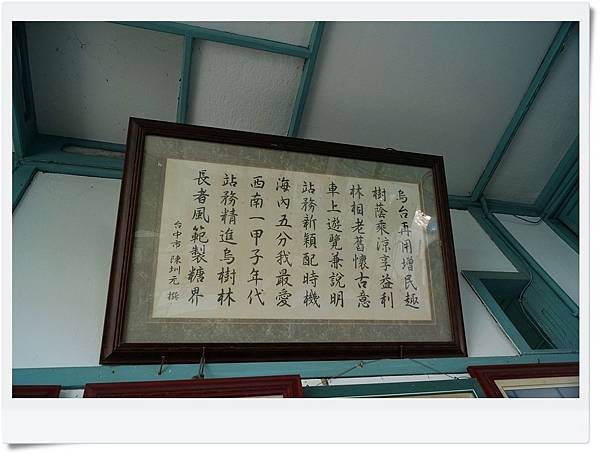 烏台再用增民趣
樹蔭乘涼享益利
林相老舊懷古意
車上遊覽兼說明
站務新穎配時機
海內五分我最愛
西南一甲子年代
站務精進烏樹林
長者風範製糖界
台中市 陳圳元 撰